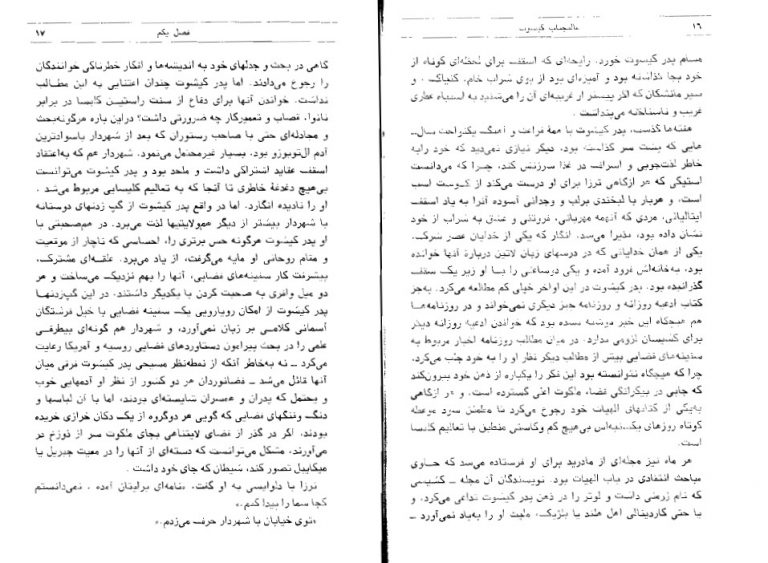 ۱۶
عالیجناب کیشوت
مشام پدر کیشوت خورد. رایحه‌ای که اسقف برای لحظه‌ای کوتاه از
خود بجا گذاشته بود و آمیزه‌ای بود از بوی شراب خام، کنیاک، و
غریب و ناشناخته می‌پنداشت.
هفته‌ها گذشت، پدر کیشوت با همهٔ فراغت و آهنگ یکنواخت سال
هایی که پشت سر گذاشته بود، دیگر نیازی نمی‌دید که خود را به
خاطر لذت‌جویی و اسراف در غذا سرزنش کند، چرا که می‌دانست
استیکی که هر ازگاهی ترزا برای او درست می‌کند از گوشت اسب
است، و هربار با لبخندی برلب و وجدانی آسوده آنرا به یاد اسقف
ایتالیائی، مردی که آنهمه مهربانی، فروتنی و عشق به شراب از خود
نشان داده بود، پذیرا می‌شد. انگار که یکی از خدایان عصر شرک،
یکی از همان خدایانی که در درسهای زبان لاتین دربارهٔ آنها خوانده
بود، به‌خانه‌اش فرود آمده و یکی دوساعتی را با او زیر یک سقف
گذرانیده بود. پدر کیشوت در این اواخر خیلی کم مطالعه می‌کرد. به‌جز
کتاب ادعیه روزانه و روزنامه چیز دیگری نمی‌خواند و در روزنامه‌ها
هم هیچگاه این خبر نوشته نشده بود که خواندن ادعیه روزانه دیگر
برای کشیشان لزومی ندارد. در میان مطالب روزنامه اخبار مربوط به
سفینه‌های فضایی بیش از مطالب دیگر نظر او را به خود جلب می‌کرد،
چرا که هیچگاه نتوانسته بود این فکر را یکباره از ذهن خود بیرون‌کند
که جایی در بیکرانگی فضا، ملکوت اعلی گسترده است. و هر ازگاهی
به‌یکی از کتابهای الهیات خود رجوع می‌کرد تا مطمئن شود موعظه
کوتاه روزهای یکشنبه‌اش بی‌هیچ کم وکاستی منطبق با تعالیم کلیسا
است.
هر ماه نیز مجله‌ای از مادرید برای او فرستاده می‌شد که حاوی
مباحث انتقادی در باب الهیات بود. نویسندگان آن مجله ــ کشیشی
با حتی کاردینالی اهل هلند یا بلژیک،
فصل یکم
۱۷
گاهی در بحث و جدلهای خود به اندیشه‌ها و افکار خطرناکی خوانندگان
را رجوع می‌دادند. اما پدر کیشوت چندان اعتنایی به این مطالب
نداشت. خواندن آنها برای دفاع از سنت راستین کلیسا در برابر
نانوا، قصاب و تعمیرکار چه ضرورتی داشت؟ دراین باره هرگونه‌بحث
و مجادله‌ای حتی با صاحب رستوران که بعد از شهردار باسوادترین
آدم ال‌توبوزو بود، بسیار غیرمحتمل می‌نمود. شهردار هم که به‌اعتقاد
اسقف عقاید اشتراکی داشت و ملحد بود و پدر کیشوت می‌توانست
بی‌هیچ دغدغهٔ خاطری تا آنجا که به تعالیم کلیسایی مربوط می‌شد،
او را نادیده انگارد. اما در واقع پدر کیشوت از گپ زدنهای دوستانه
با شهردار بیشتر از دیگر همولایتیها لذت می‌برد. در هم‌صحبتی با
او پدر کیشوت هرگونه حس برتری را، احساسی که ناچار از موقعیت
و مقام روحانی او مایه می‌گرفت، از یاد می‌برد. علقه‌ای مشترک،
پیشرفت کار سفینه‌های فضایی، آنها را بهم نزدیک می‌ساخت و هر
دو میل وافری به صحبت کردن با یکدیگر داشتند. در این گپ‌زدنها
پدر کیشوت از امکان رویارویی یک سفینه فضایی با خیل فرشتگان
آسمانی کلامی بر زبان نمی‌آورد، و شهردار هم گونه‌ای بیطرفی
علمی را در بحث پیرامون دستاوردهای فضایی روسیه و آمریکا رعایت
می‌کرد ــ نه به‌خاطر آنکه از نقطه‌نظر مسیحی پدر کیشوت فرقی میان
آنها قائل می‌شد ــ فضانوردان هر دو کشور از نظر او آدمهایی خوب
و بحتمل که پدران و همسران شایسته‌ای بودند، اما با آن لباسها و
دنگ وفنگهای فضایی که گویی هر دوگروه از یک دکان خرازی خریده
بودند، اگر در گذر از فضای لایتناهی بجای ملکوت سر از دوزخ در
می‌آورند، مشکل می‌توانست که دسته‌ای از آنها را در معیت جبریل یا
میکاییل تصور کند، شیطان که جای خود داشت.
ترزا با دلواپسی به او گفت، «نامه‌ای برایتان آمده. نمی‌دانستم
کجا شما را پیدا کنم.»
«توی خیابان با شهردار حرف می‌زدم.»